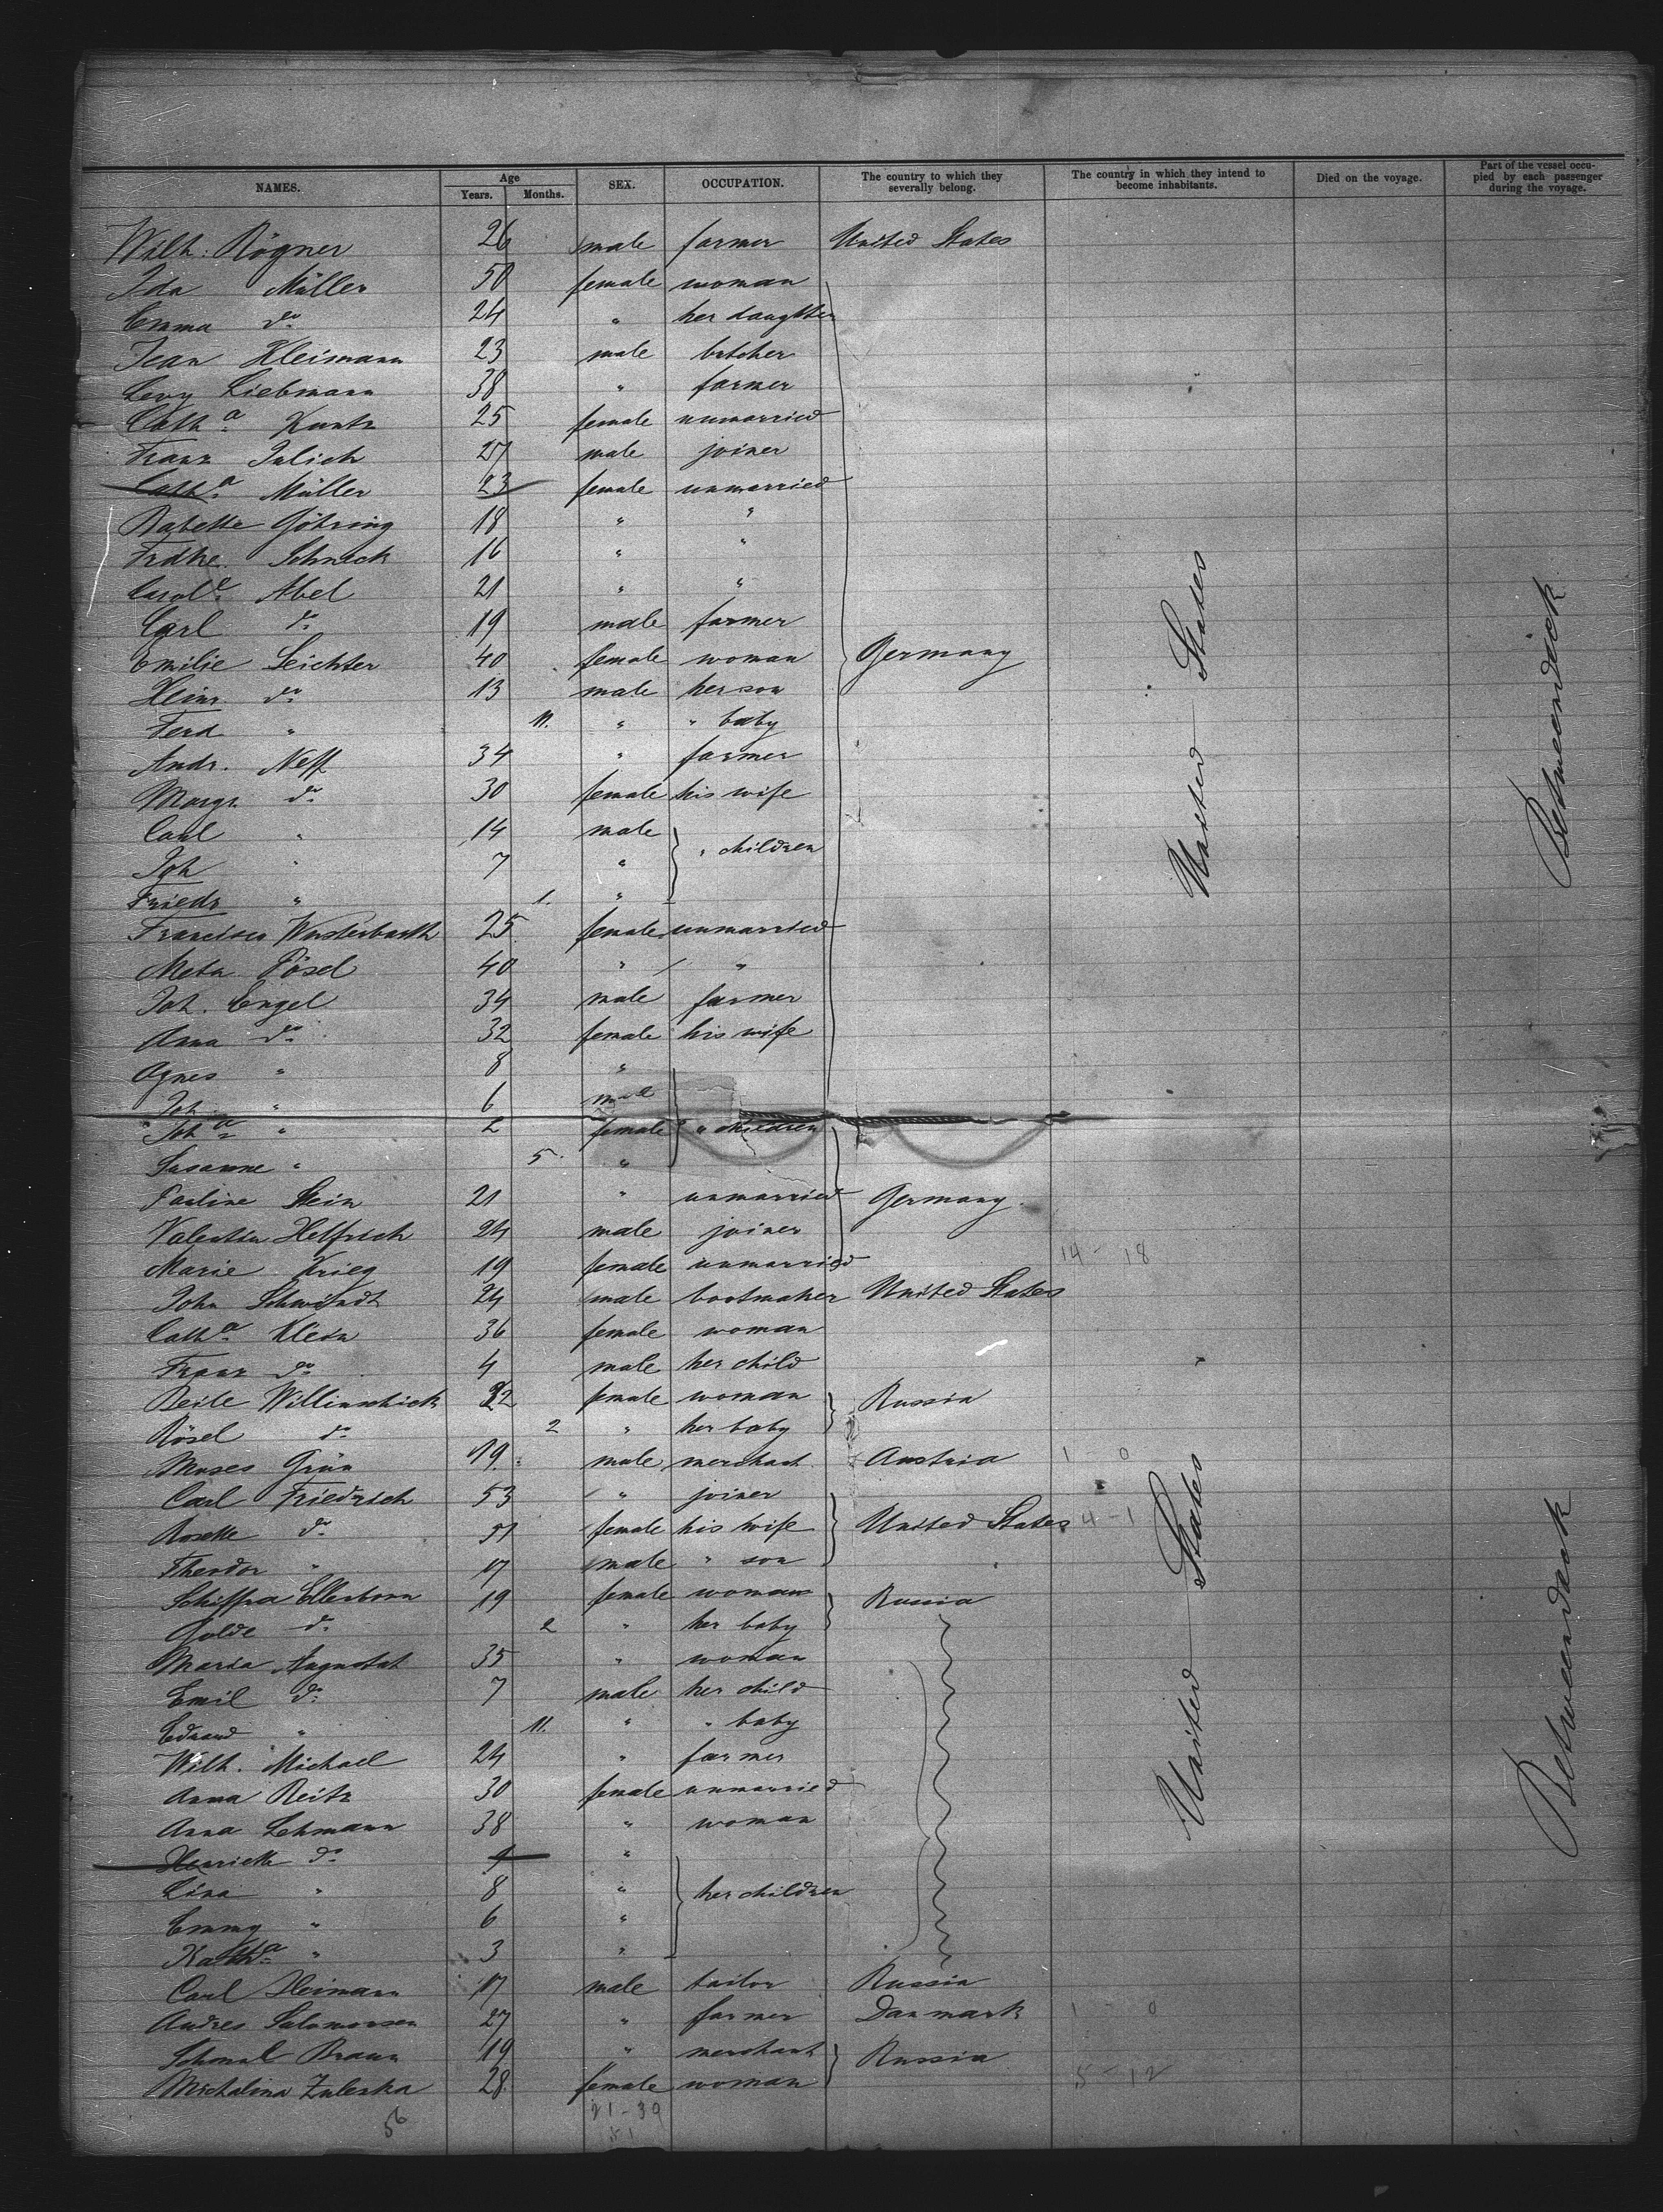 NAMES. Age Years. Months. SEX. OCCUPATION. The country to which they severally belong. The country in which they intend to become inhabitants. Died on the voyage. Part of the vessel occupied by each passenger during the voyage.
Wilh. Rögner 26 male farmer United States
Ida Müller 50 female woman
Emma do 24 " her daughter
Jean Kleimann 23 male butcher
Levy Liebmann 38 " farmer
Catha Kuntz 25 female unmarried
Franz Julich 27 male joiner
Catha Müller 23 female unmarried
Babette Göhring 18 " "
Frdke. Schneck 16 " "
Carole Abel 21 " "
Carl do 19 male farmer
Emilie Leichter 40 female woman Germany
Heinr. do 13 male her son
Ferd " 11. " " baby
Andr. Neff 34 " farmer
Margr. do 30 female his wife
Carl " 14 male
Joh " 7 " " children
Friedr " 1. "
Francisca Wusterbarth 25 female unmarried
Meta Pösel 40 " "
Joh. Engel 34 male farmer
Anna do 32 female his wife
Agnes " 8 "
Joh. " 6 male
Joha " 2 female " children
Susanne " 5 "
Pauline Stein 21 " unmarried Germany
Valentin Helfrich 24 male joiner
Marie Krieg 19 female unmarried 14 - 18
John Schwindt 24 male bootmaker United States
Catha Klein 36 female woman
Franz do 4 male her child
Beile Willinschick 22 female woman Russia
Rösel do 2 " her baby
Moses Grün 19 male merchant Austria 1 0
Carl Friedrich 53 " joiner
Rosette do 51 female his wife United States 4 - 1
Theodor " 17 male " son
Schiffra Ellerborn 19 female woman Russia
Golde do 2 " her baby
Maria Augustat 35 " woman
Emil do 7 male her child
Eduard " 11. " " baby
Wilh. Michael 24 " farmer
Anna Reitz 30 female unmarried
Anna Lehmann 38 " woman
Henriette do 9 "
Lina " 8 " her children
Emmy " 6 "
Katha " 3 "
Carl Heimann 17 male tailor Russia
Andres Salomonsen 27 " farmer Danmark 1 - 0
Schmul Braun 19 " merchant Russia
Michalina Zuleska 28 female woman 5 - 12
56
21 - 39
United States
Betweendeck
United States
Betweendeck